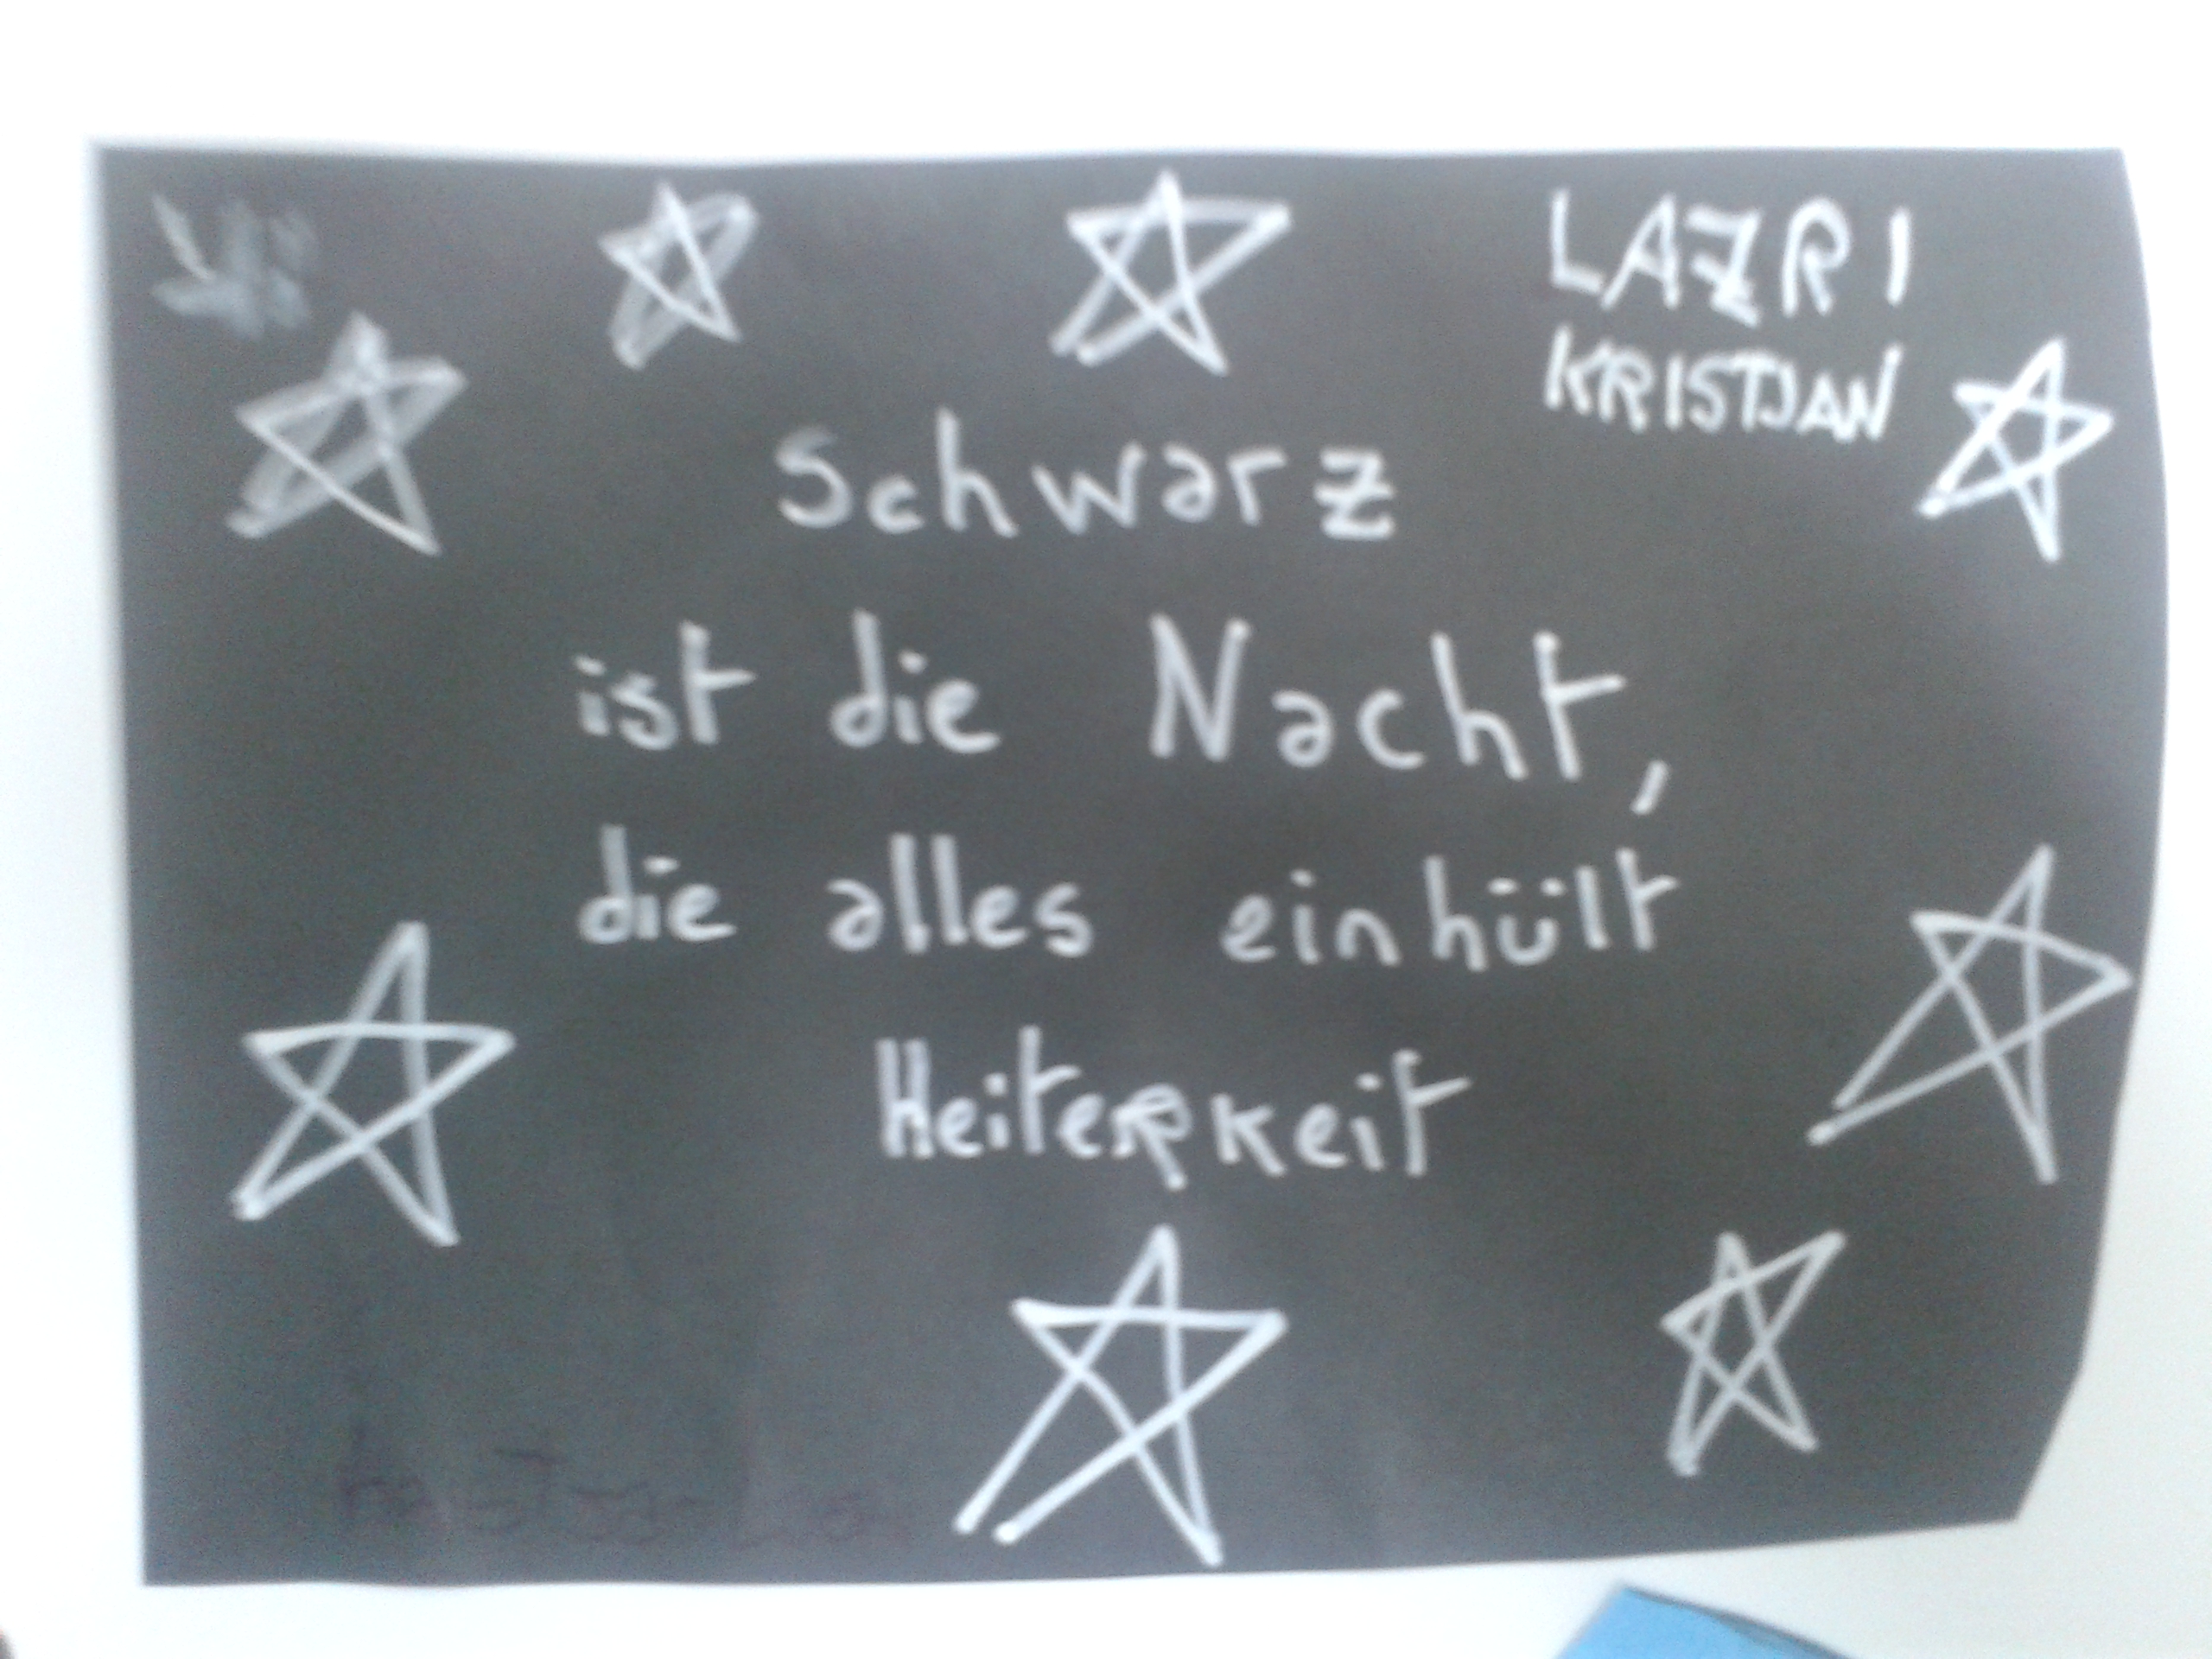 LAZRI
KRISTJAN
Schwarz
ist die Nacht,
die alles einhült
Heiterkeit